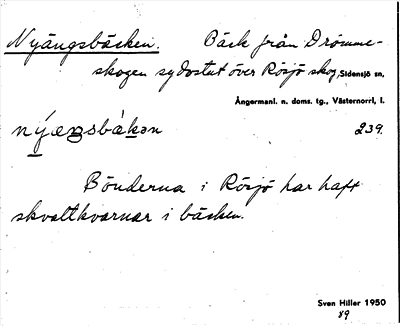 Nyängsbäcken. Bäck från Drömme-
skogen sydostut över Rösjö skog, Sidensjö sn,
Ångermanl. n. doms. tg., Västernorrl, l.
nýæŋsbàkən 239.
Bönderna i Rösjö har haft
skvaltkvarnar i bäcken.
Sven Hiller 1950
89